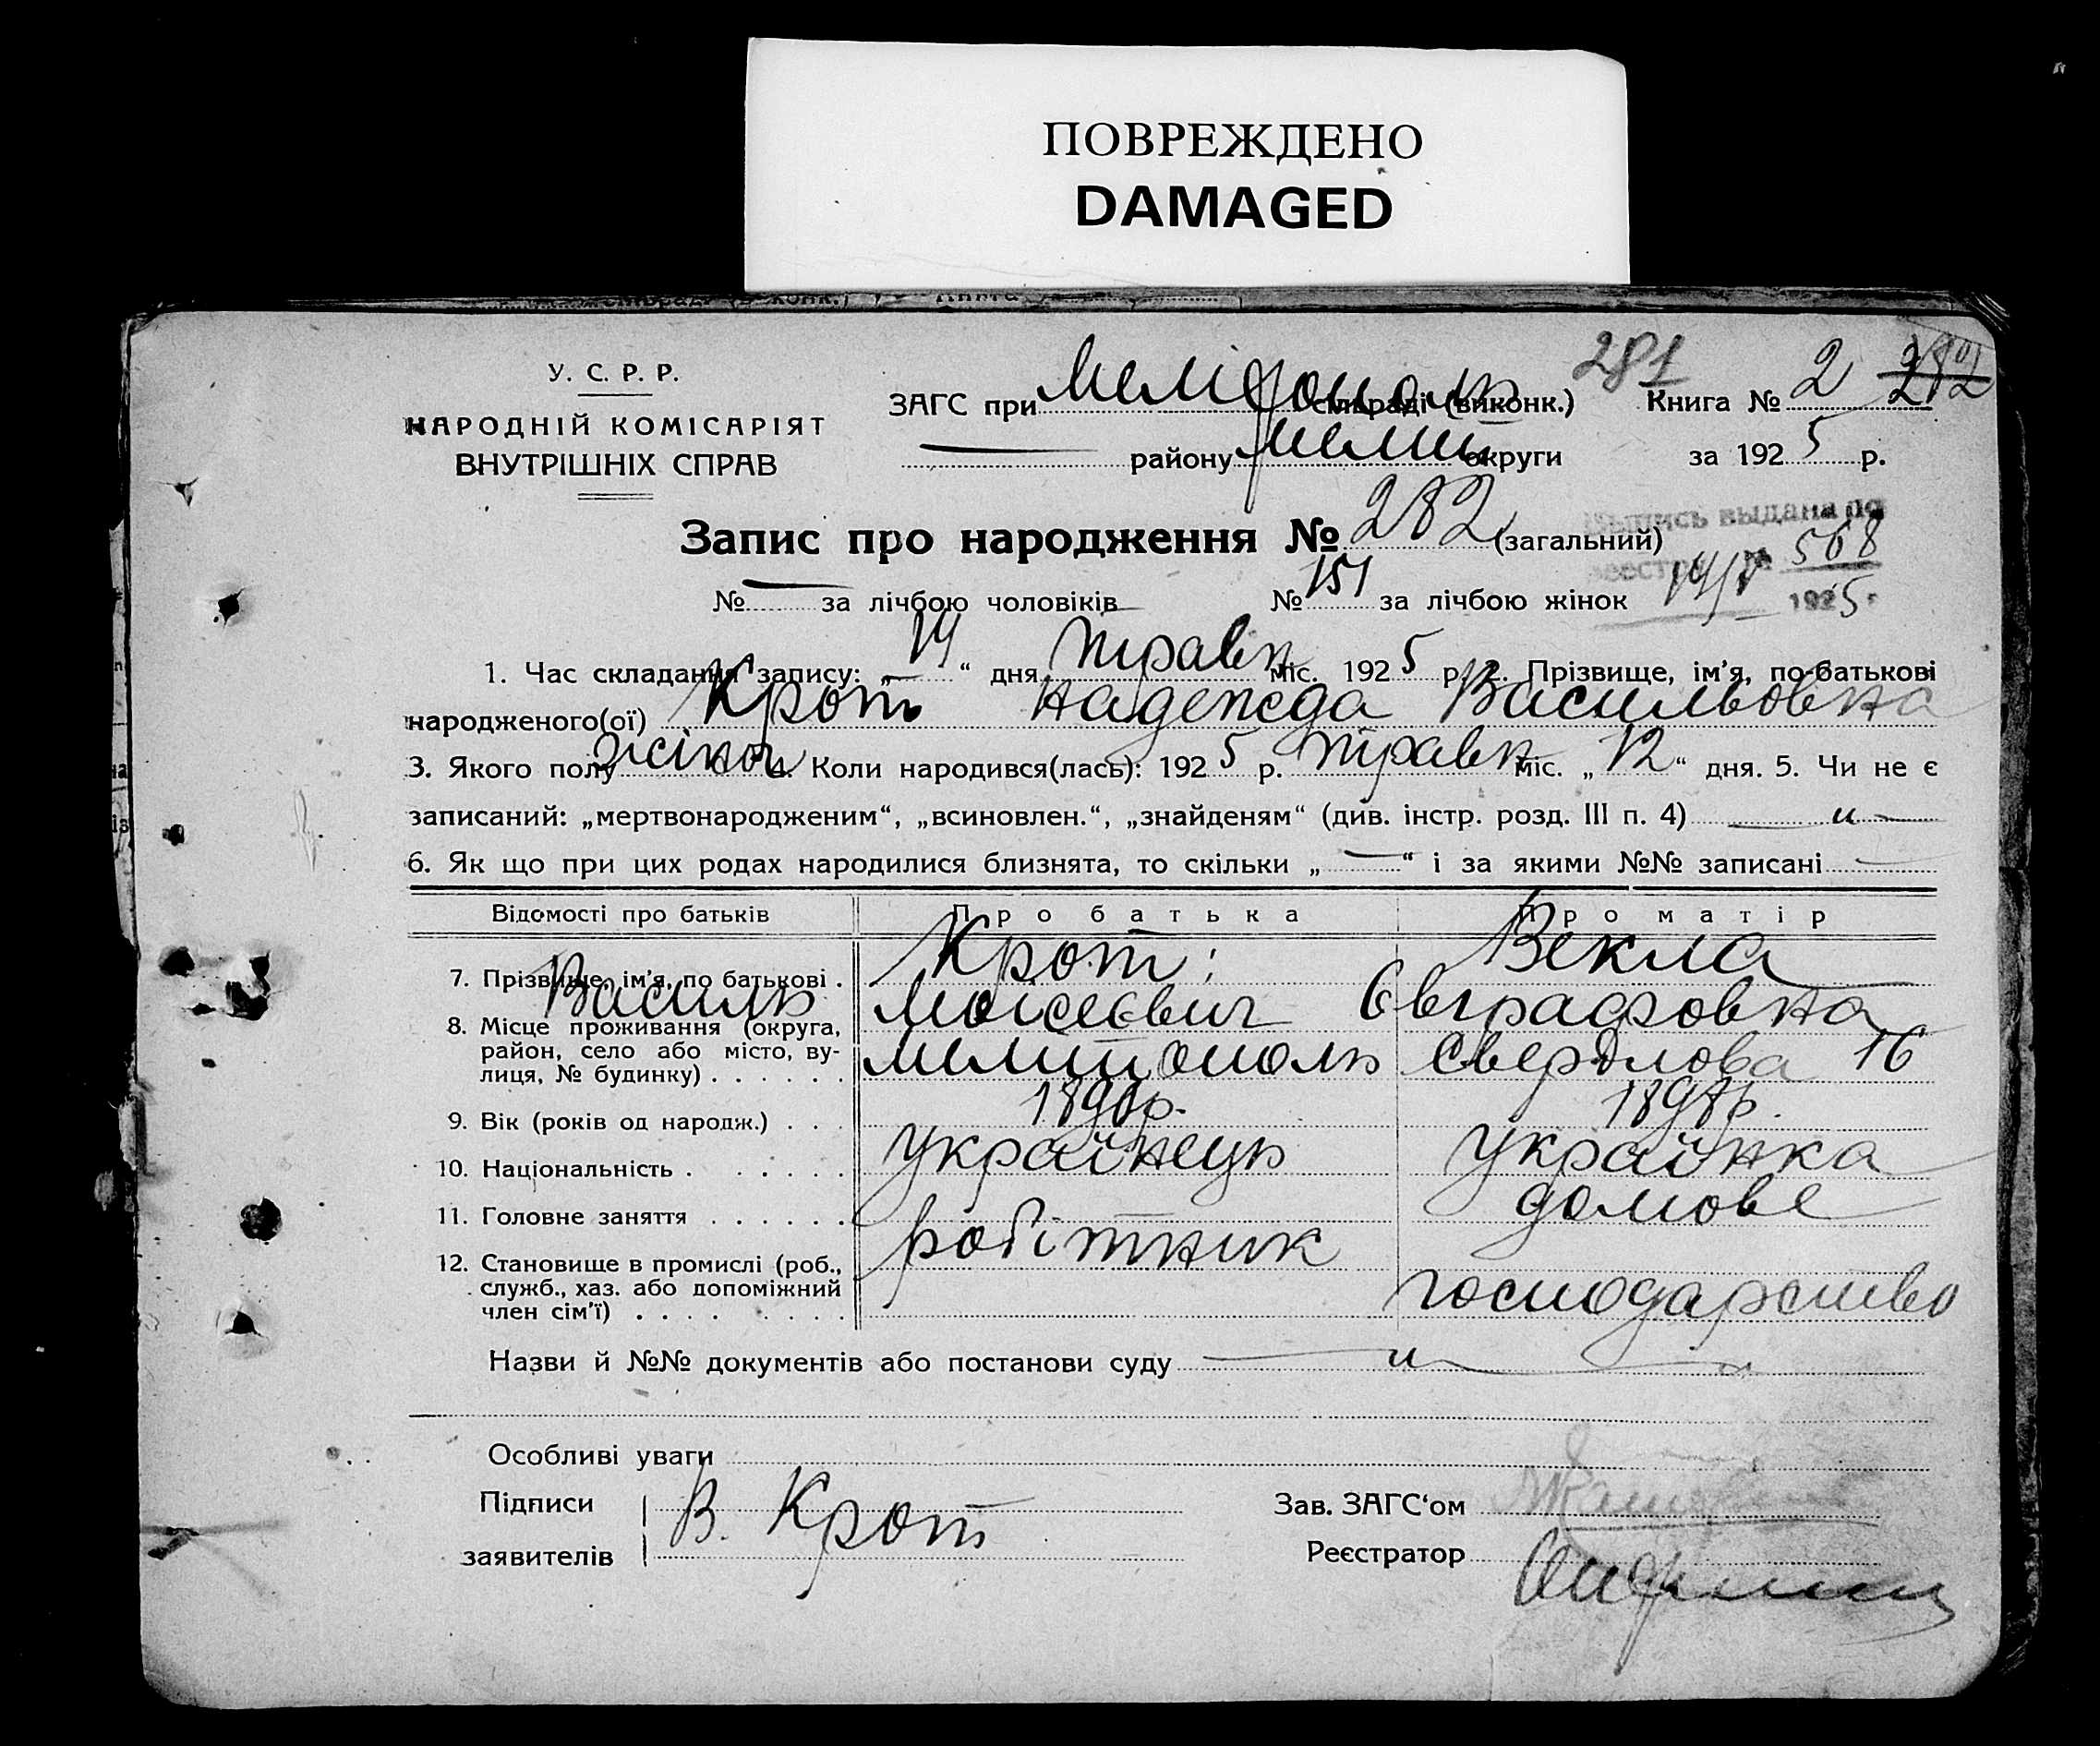 ПОВРЕЖДЕНО
DAMAGED
281
282
У. С. Р. Р.
НАРОДНІЙ КОМІСАРІЯТ
ВНУТРІШНІХ СПРАВ
ЗАГС при сільраді (виконк.) Книга № 2
району Меліт округи за 1925 р.
Запис про народження № 282 (загальний)
Выпись выдана по
568
14/V 1925 г
№ — за лічбою чоловіків № 151 за лічбою жінок
1. Час складання запису: „14“ дня травн міс. 1925 р. 2. Прізвище, ім’я, по-батькові
народженого(ої) Крот Надежда Васильовна
3. Якого полу жіноч 4. Коли народився(лась): 1925 р. травн міс. „12“ дня. 5. Чи не є
записаний: „мертвонародженим“, „всиновлен.“, „знайденям“ (див. інстр. розд. III п. 4) — „ —
6. Як що при цих родах народилися близнята, то скільки „—“ і за якими №№ записані —
Відомості про батьків Про батька Про матір
7. Прізвище, ім’я, по батькові . Крот: Векла
Василь Моісеєвич Євграфовна
8. Місце проживання (округа,
район, село або місто, вулиця, № будинку) . . . . . . Мелитополь Свердлова 16
9. Вік (років од народж.) . . . 1898р.
10. Національність . . . . . . українець українка
11. Головне заняття . . . . . . робітник домове
12. Становище в промислі (роб.,
служб., хаз. або допоміжний
член сім’ї) . . . . . . . . господарство
Назви й №№ документів або постанови суду — „ —
Особливі уваги
Підписи
заявителів В. Крот
Зав. ЗАГС‘ом
Реєстратор